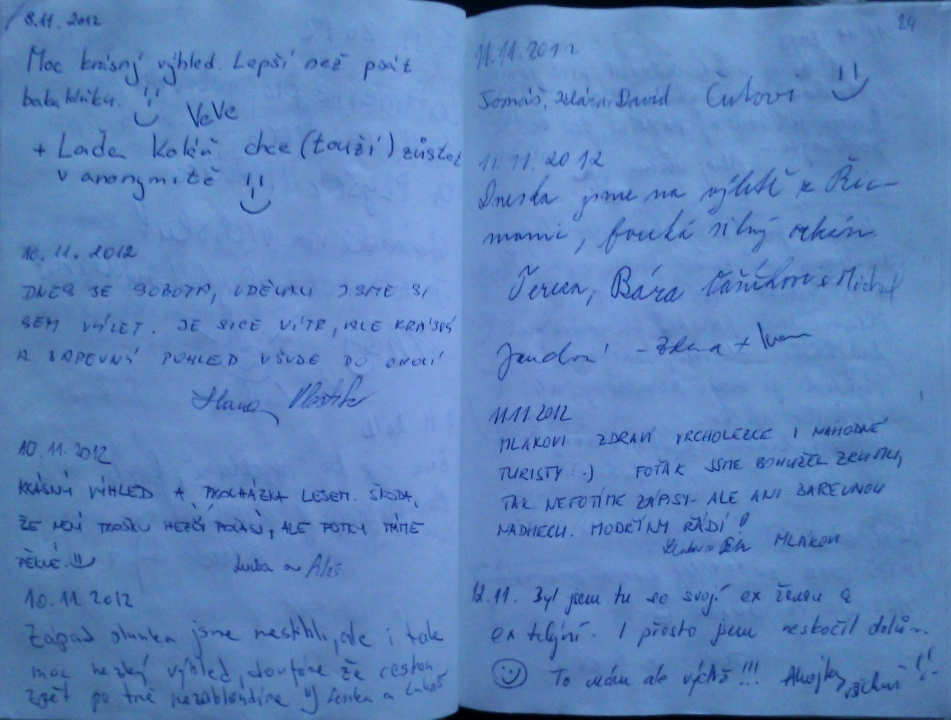 8.11.2012
Moc krásný výhled. Lepší než psát
bakalářku.
VeVe
+ Laďa Kolář chce (touží) zůstat
v anonymitě
10.11.2012
DNES JE SOBOTA, UDĚLALI JSME SI
SEM VÝLET. JE SICE VÍTR, ALE KRÁSNÝ
A BAREVNÝ POHLED VŠUDE DO OKOLÍ
Hana Vlastík
10.11.2012
KRÁSNÝ VÝHLED A PROCHÁZKA LESEM. ŠKODA,
ŽE NENÍ TROŠKU HEZČÍ POČASÍ, ALE FOTKY MÁME
PĚKNÉ.
Luba a Aleš
10.11.2012
Západ slunka jsme nestihli, ale i tak
moc hezký výhled, doufáme že cestou
zpět po tmě nezabloudíme Lenka a Lukáš
24
11.11.2012
Tomáš, Klára, David
11.11.2012
Dneska jsme na výletě s
mami, fouká silný orkán
Tereza, Bára a Michal
Zdena + Ivan
11.11.2012
MLÁKOVI ZDRAVÍ VRCHOLEZCE I NÁHODNÉ
TURISTY :-) FOŤÁK JSME BOHUŽEL ZKURTILI,
TAK NEFOTÍME ZÁPISY - ALE ANI BAREVNOU
NÁDHERU. MODETÍN ŘÁDÍ!
MLÁKOVI
12.11. Byl jsem tu so svojí ex ženou a
ex tchýní. I přesto jsem neskočil dolů.
To mám ale výdrž!!! Ahojky všichni